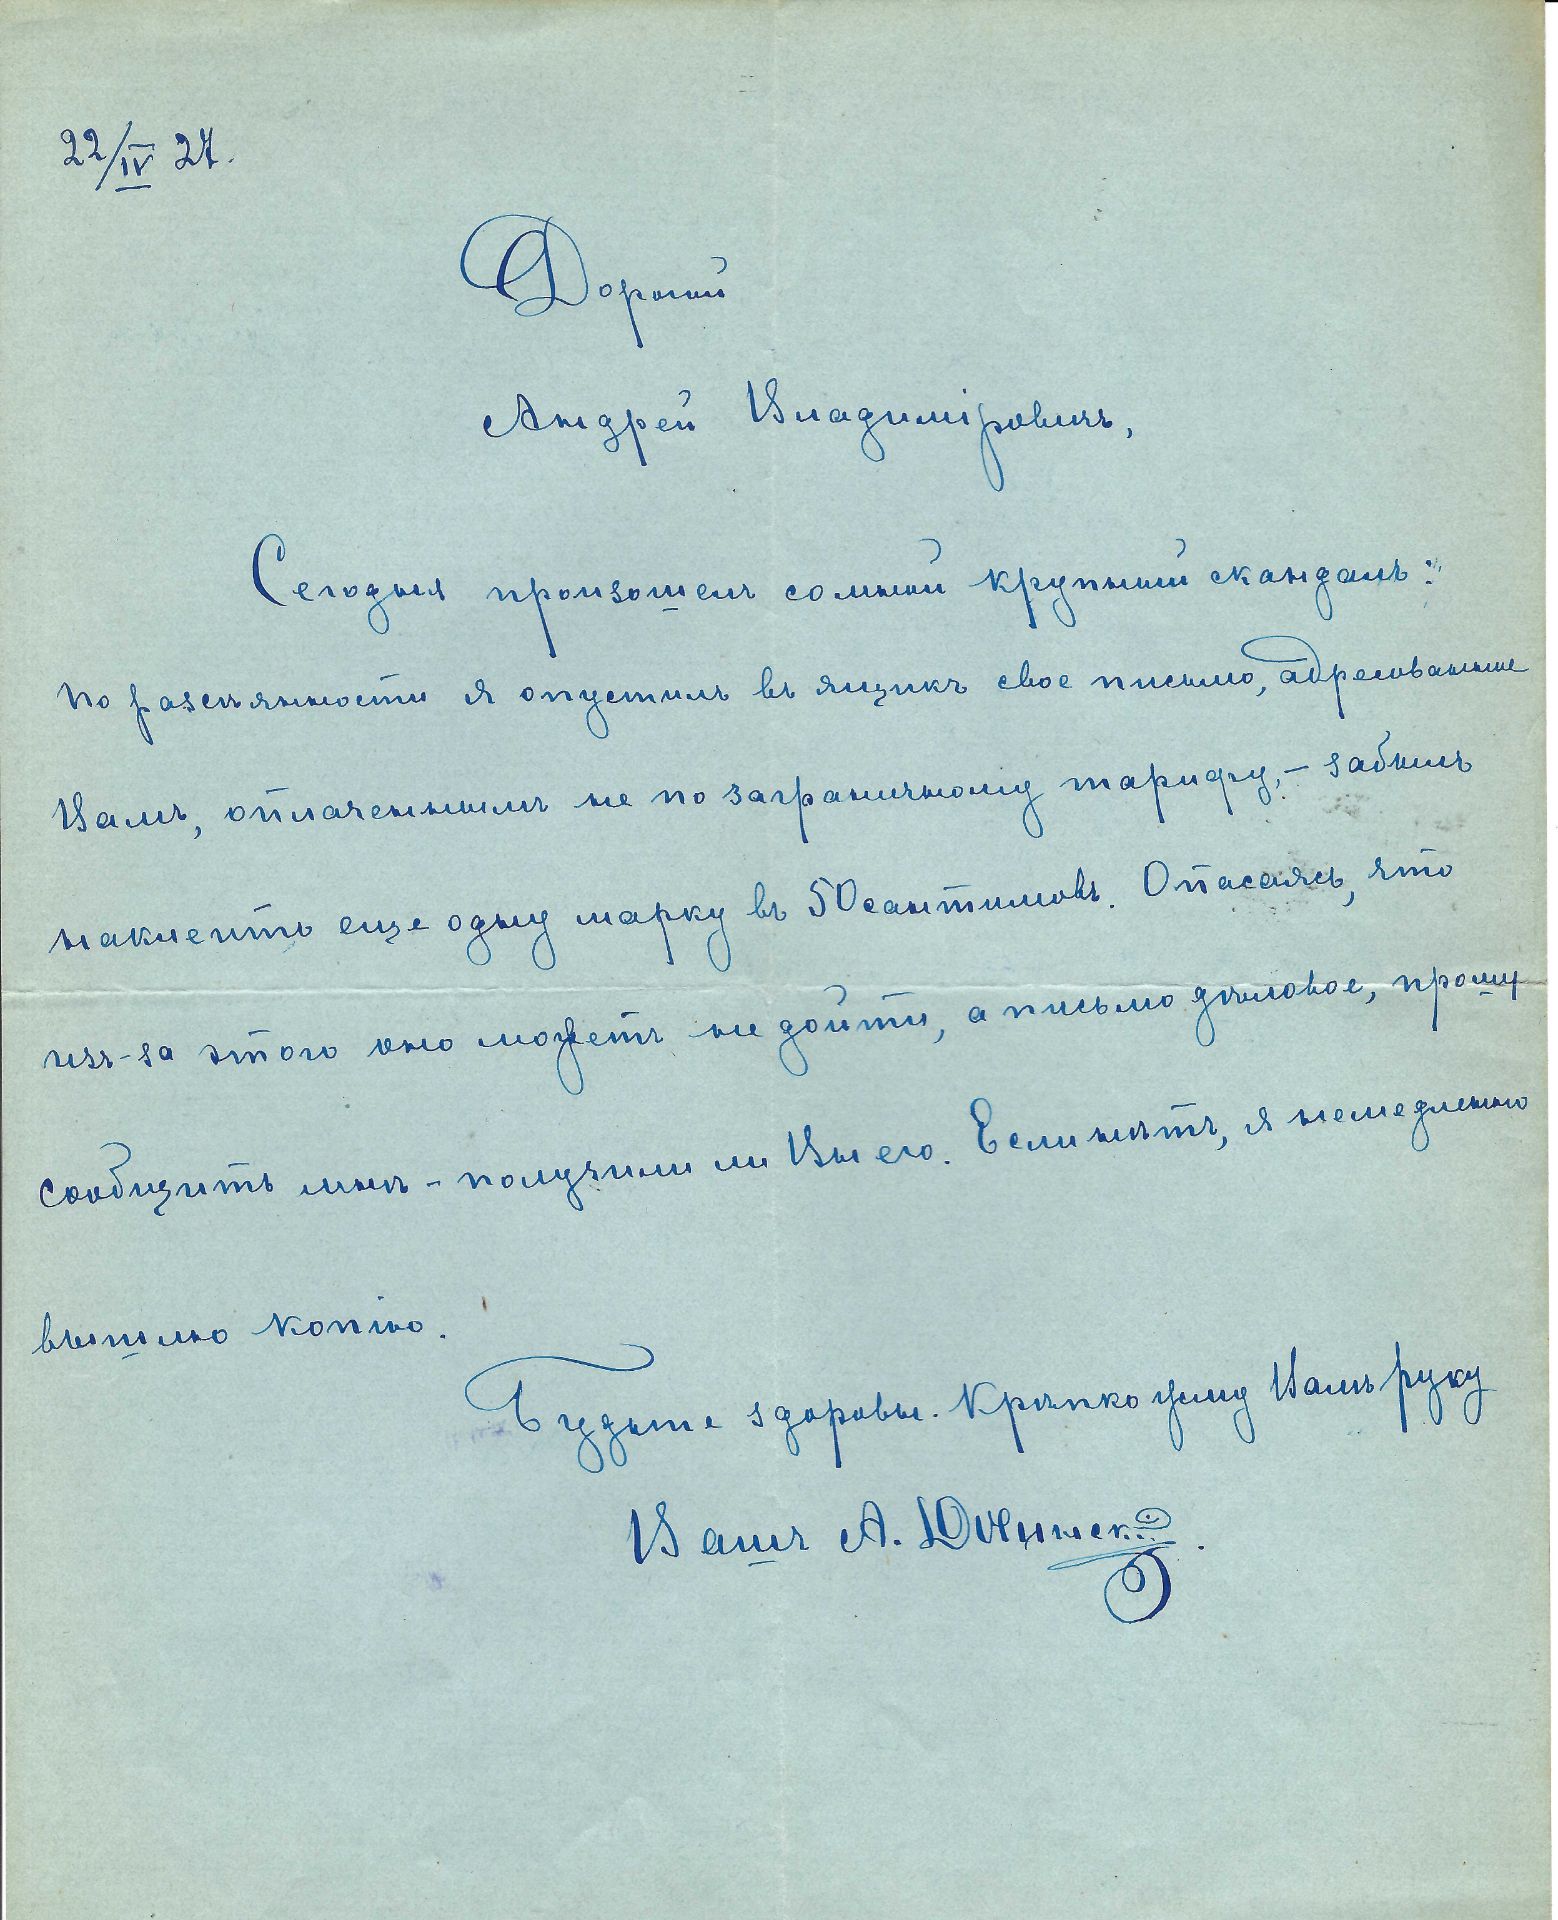 22/IV 27.
Дорогой
Андрей Владиміровичъ,
Сегодня произошелъ со мной крупный скандалъ:
по разсѣянности я опустилъ въ ящикъ свое письмо, адресованное
Вамъ, оплаченнымъ не по заграничному тарифу, – забылъ
наклеить еще одну марку въ 50 сантимовъ. Опасаясь, что
изъ-за этого оно можетъ не дойти, а письмо дѣловое, прошу
сообщить мнѣ – получили ли Вы его. Если нѣтъ, я немедленно
вышлю копію.
Будьте здоровы. Крѣпко жму Вамъ руку
Вашъ А.